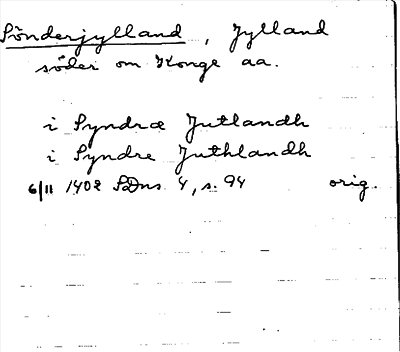 Sönderjylland, Jylland
söder om Konge aa.
i Syndræ Jutlandh
i Syndre Juthlandh
6/11 1402 SDns 4, s. 94 orig.